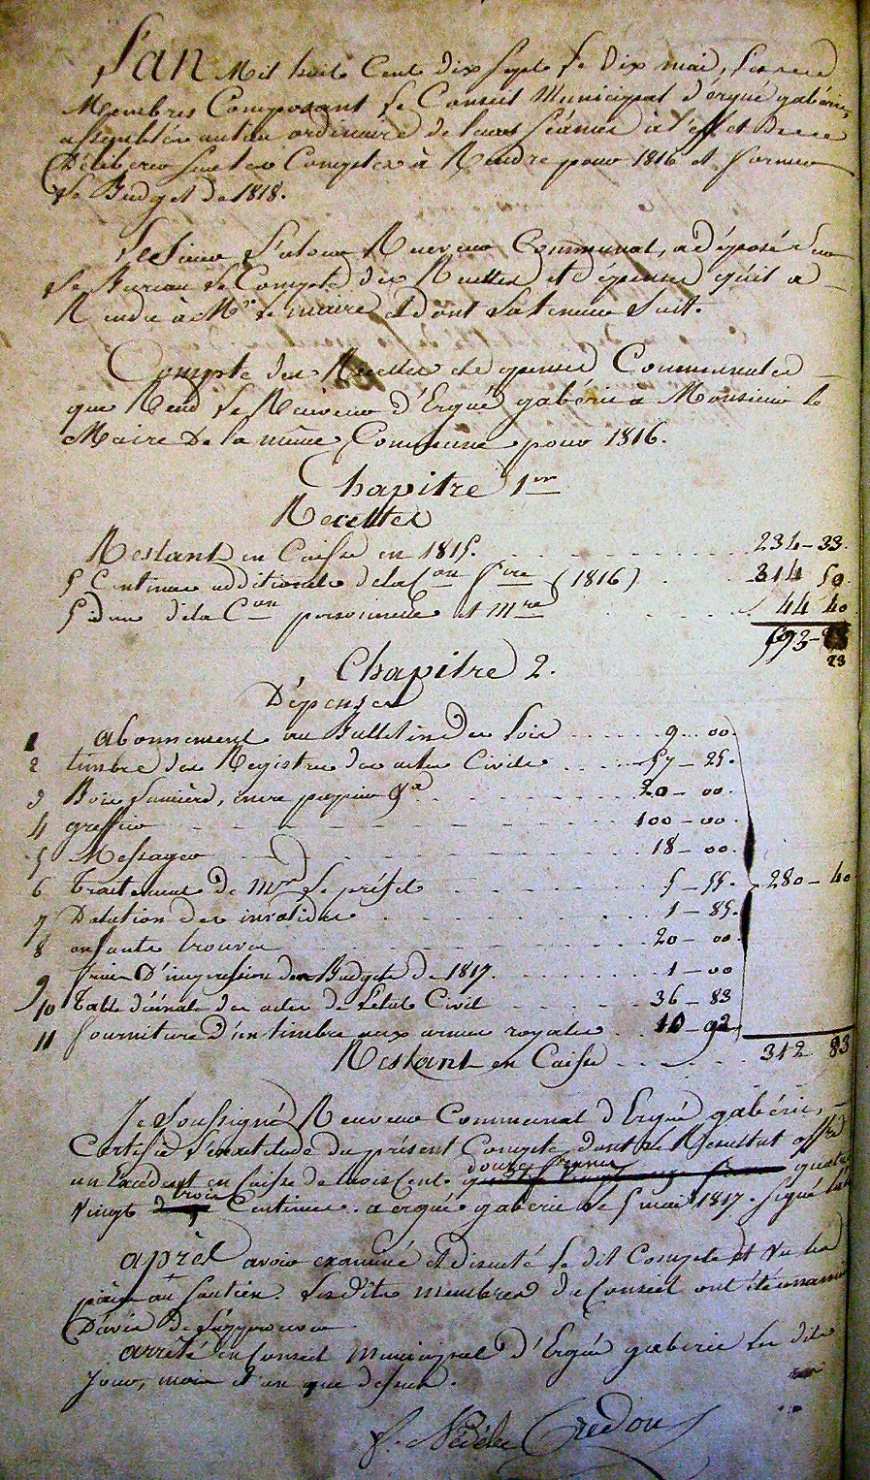 L'an Mil huit Cent dix Sept Le Dix mai, Les
Membres Composant Le Conseil Municipal d'ergué gabéric,
assemblés au lieu ordinaire de leurs Séances à l'effet De
Délibérer Sur les Comptes à Rendre pour 1816 et former
Le Budget de 1818.
Le Sieur Receveur Communal, a déposé Sur
Le Bureau Le Compte des Recettes et dépenses qu'il a
Rendu à Mr. Le maire et dont La teneur Suit.
Compte des Recettes et depenses Communales
que Rend Le Receveur d'Ergué gabéric à Monsieur le
Maire De la même Commune pour 1816.
Chapitre 1er
Recettes
Restant en Caisse en 1815. 234-33.
5 Centimes additionels de la Con fre (1816) 314 50.
5 idem de la Con personnelle et mre 44 40
593-
23
Chapitre 2.
Dépenses
1 abonnement au Bulletin des Lois 9-00.
2 timbre des Registres des actes Civils 57-25.
3 Bois Lumière, encre papier &a 20-00.
4 greffier 100-00.
5 Messager 18-00.
6 Traitement de Mr Le préfet 5-55. 280-40
7 Dotation des invalides 1-85.
8 enfants trouvés 20-00.
9 frais D'impression des Budgets de 1817. 1-00
10 Table décénale des actes de L'état Civil 36-83
11 fourniture d'un timbre aux armes royales 10-92
Restant en Caisse 312 83
Je Soussigné Receveur Communal d'Ergué gabéric,
Certifie L'exactitude du présent Compte dont Le Résultat offre
un Excédent en Caisse de trois Cent douze francs quatre
Vingt trois Centimes. a ergué gaberic le 5 mai 1817. Signé
après avoir examiné et discuté Le dit Compte et Vu les
pièces au Soutien. Lesdits membres du Conseil ont été unanim
D'avis de L'approuver
arrêté en Conseil Municipal d'Ergué gaberic Les dits
Jour, mois et an que dessus.